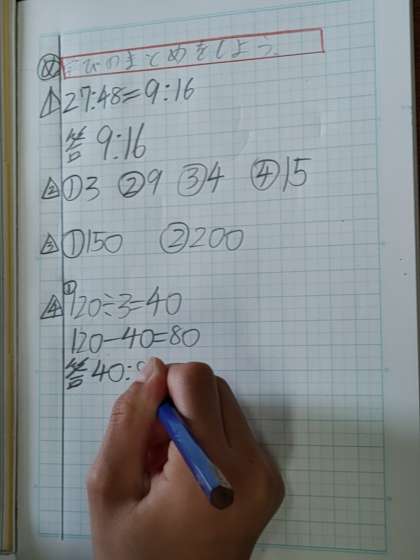 め まなびのまとめをしよう。
1 27:48=9:16
答 9:16
2 ①3 ②9 ③4 ④15
3 ①150 ②200
4 ① 120÷3=40
120-40=80
答 40: